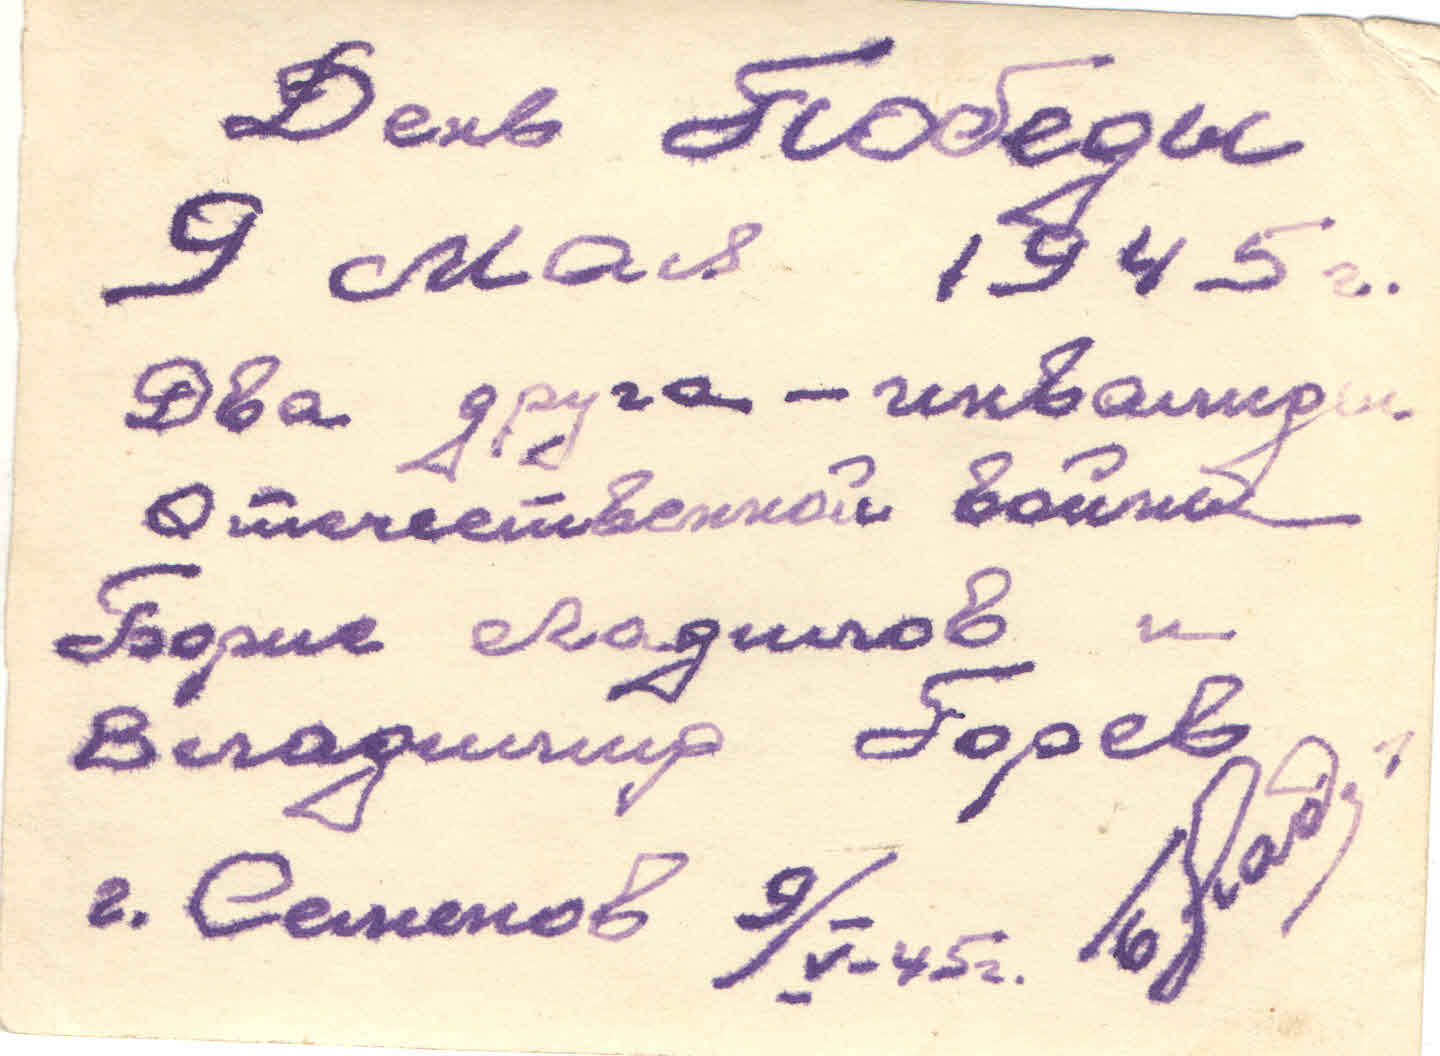 День Победы
9 мая 1945 г.
Два друга - инвалиды
Отечественной войны
Борис Ладилов и
Владимир Горев
г. Семенов 9/V-45г.